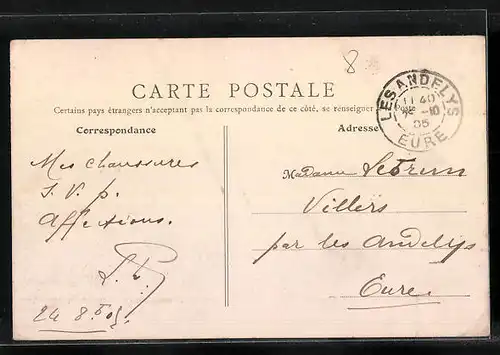 8
CARTE POSTALE
Certains pays étrangers n'acceptant pas la correspondance de ce côté, se renseigner à la Poste
Correspondance
Mes chaussures
S. V. p.
Affections.
24 8bre 05
Adresse
LES ANDELYS
11 40
EURE
Madame Lebrun
Villers
par les Andelys
Eure